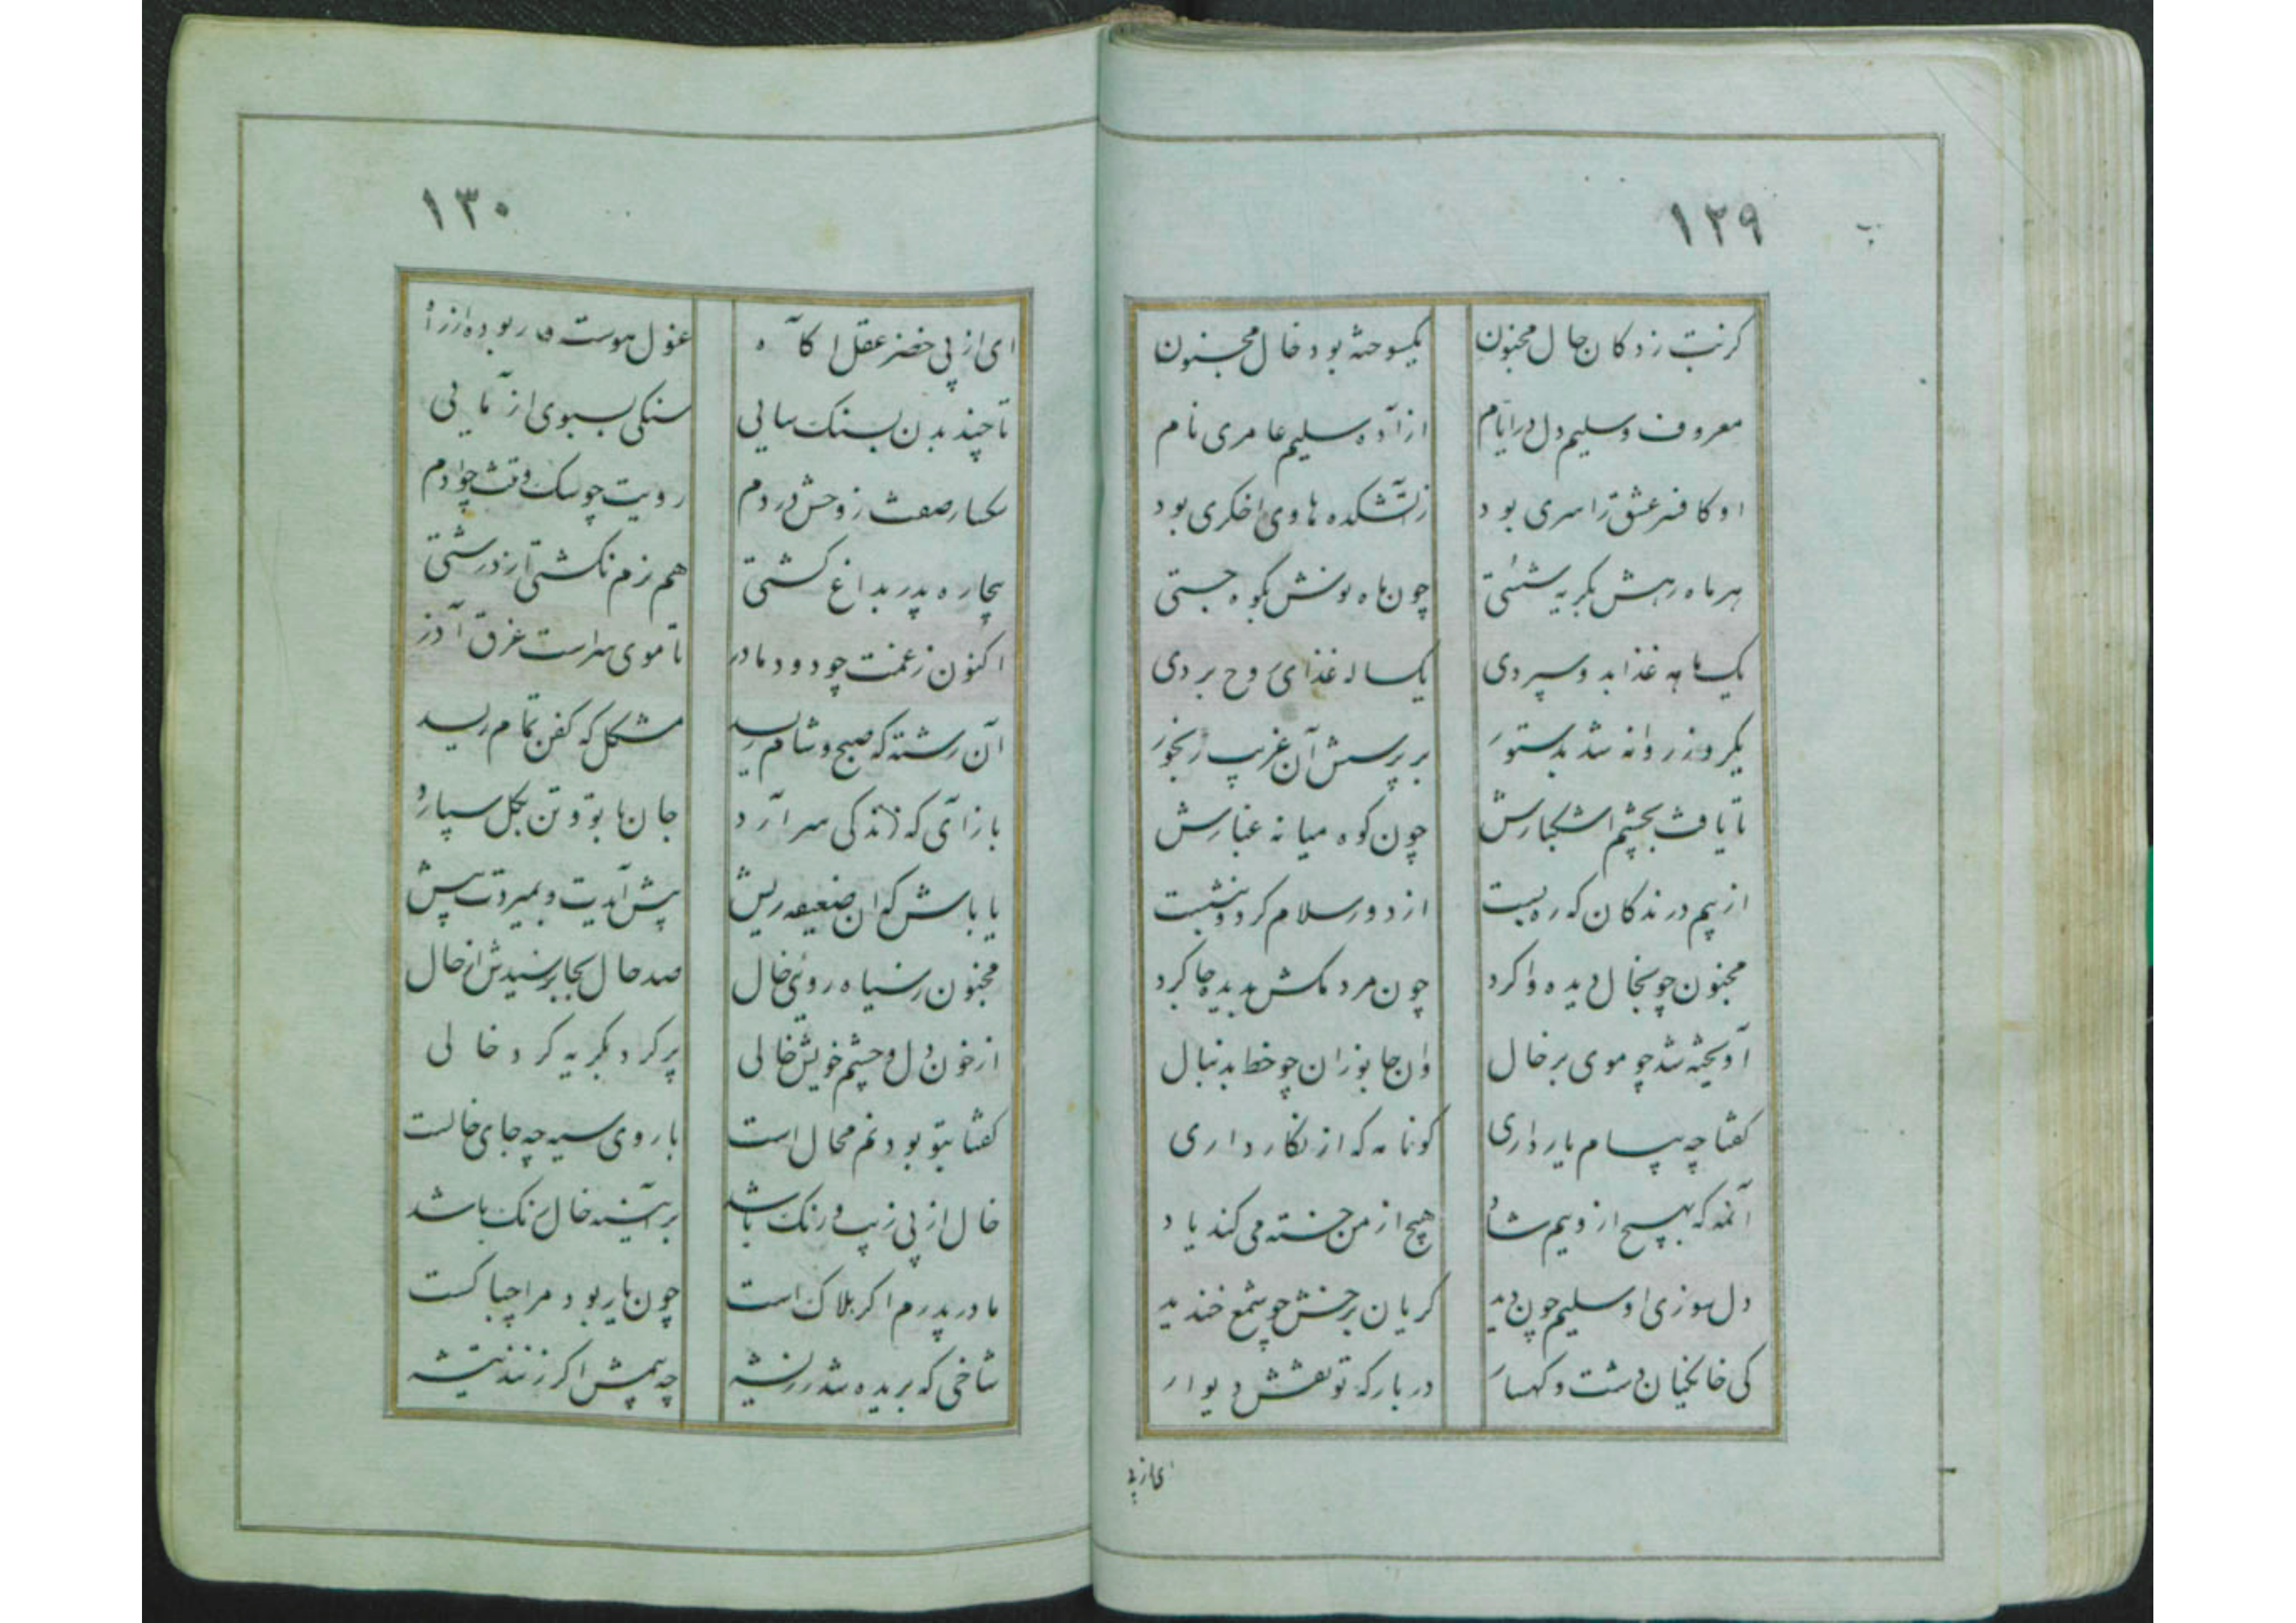 ۱۲۹
کرنبت زدکان حال مجنون یکسوخته بود خال مجنون
معروف و سلیم دل در ایام از آده سلیم عامری نام
او کافر عشق را سری بود زآتشکده هاوی اخکری بود
هر ماه رهش بکریه شستی چون ماه نوش بکوه جستی
یک ماهه غذا بدو سپردی یکساله غذای روح بردی
یکروز روانه شد بدستور بر پرسش آن غریب رنجور
تا یافت بچشم اشکبارش چون کوه میانه غبارش
از بیم درندکان که ره بست از دور سلام کرد و بنشست
مجنون چو بخال دیده واکرد چون مردمکش بدیده جا کرد
آویخته شد چو موی بر خال وان جانوران چو خط بدنبال
کفتا چه پیام یار داری کو نامه که از نکار داری
آنمه که بهیچ ازویم شاد هیچ از من خسته می کند یاد
دل سوزی او سلیم چون دید کریان برخش چو شمع خندید
کی خانکیان دشت و کهسار در بارکه تو نقش دیوار
ای از پی
۱۳۰
ای از پی خضر عقل اکاه غول هوست ربوده از راه
تا چند بدن بسنک سایی سنکی بسبوی آزمایی
کسار صفت ز وحش در دم رویت چو سک وقت چو آدم
بیچاره پدر بداغ کشتی هم رزم نکشتی از درشتی
اکنون زغمت چو دود مادر تا موی سراست غرق آذر
آن رشته که صبح و شام ریسد مشکل که کفن تمام ریسد
باز آی که زندکی سر آرد جان با تو و تن بکل سپارد
یا باش که آن ضعیفه ریش پیش آیدت و بمیردت پیش
مجنون ز سیاه رویی خال صد حال بجا رسیدش از خال
از خون دل و چشم خویش خالی پر کرد بکریه کرد خالی
کفتا بتو بودنم محال است با روی سیه چه جای خالست
خال از پی زیب و رنک باشد بر آینه خال زنک باشد
مادر پدرم اکر هلاک است چون یار بود مرا چه باکست
شاخی که بریده شد ز ریشه چه بیمش اکر زنند تیشه